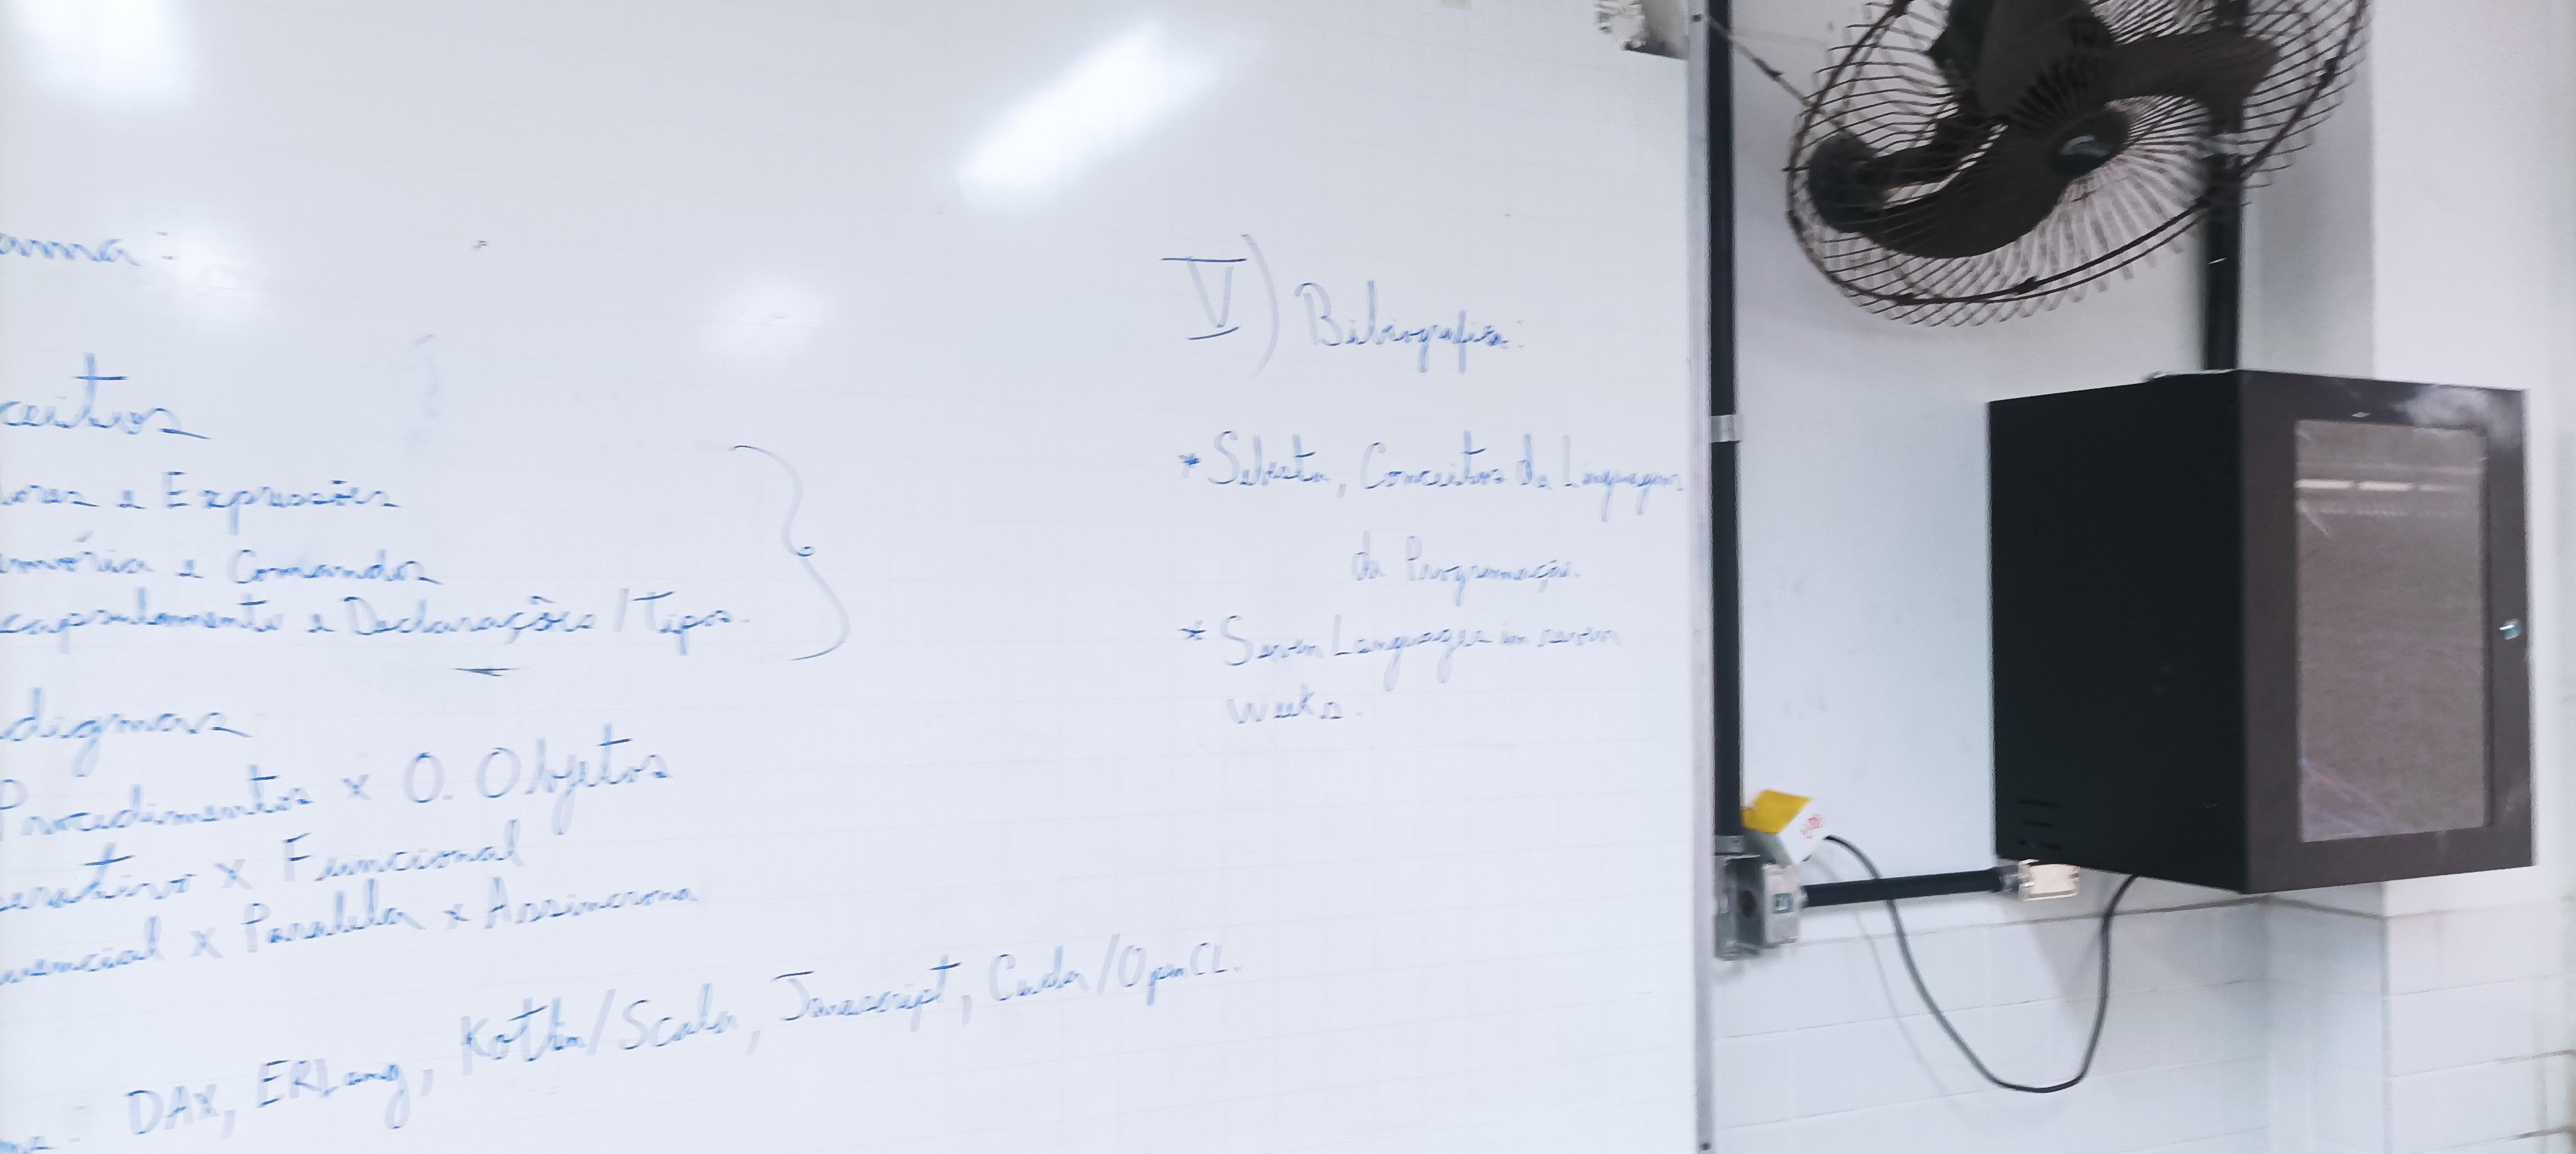 ama:
ceitos
ores e Expressões
emória e Comandos
capsulamento e Declarações/Tipos.
digmas
Procedimentos x O. Objetos
erativo x Funcional
uencial x Paralela x Assíncrona
mas: DAX, ERLang, Kotlin/Scala, Javascript, Cuda/OpenCL.
V) Bibiografia:
* Sebesta, Conceitos de Linguagens
de Programação.
* Seven Languages in seven
weeks.